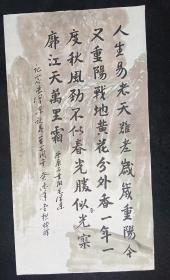 人生易老天難老歲歲重陽今
又重陽戰地黃花分外香一年一
度秋風勁不似春光勝似光寥
廓江天萬里霜
紀念